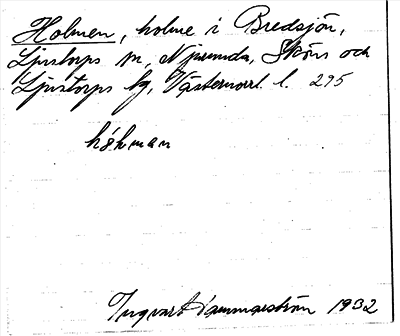 Holmen, holme i Bredsjön,
Ljustorps sn, Njurunda, Sköns och
Ljustorps tg, Västernorrl. l. 295
hóhman
Ingvart Hammarström 1932